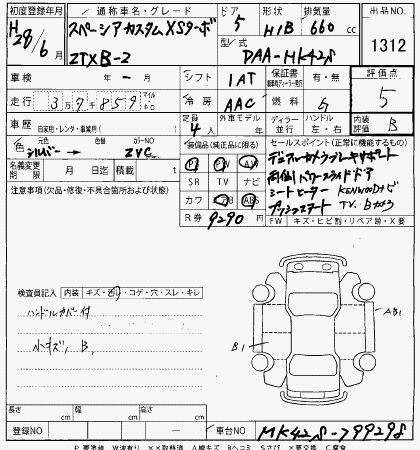 初度登録年月 通称車名・グレード ドア 形状 排気量 出品NO.
H28/6月 スペーシアカスタムXSターボ 5 H/B 660 cc 1312
ZTXB-2 型式 DAA-MK42S
車検 年 - 月 シフト 1AT 保証書 有・無 評価点
走行 37859 マイル キロ 冷房 AAC 燃料 G 5
車歴 自家用・レンタ・事業用( ) 定員 4人 外車モデル 年 ディーラー 並行 ハンドル 左・右 内装 B
色 元色 シルバー → 色替 カラーNO ZVC 装備品(純正品に限る) セールスポイント(正常に機能するもの)
名義変更期限 月 日 積載 t PS PW AW デュアルカメラブレーキサポート
注意事項(欠品・修復・不具合箇所および状態) SR TV ナビ 両側パワースライドドア
カワ ABS シートヒーター KENWOODナビ
R券 9290円 プッシュスタート TV. Bカメラ
FW キズ・ヒビ割・リペア跡・X要
検査員記入 内装 キズ・汚り・コゲ・穴・スレ・キレ
ハンドルカバー付
小キズ, B,
B1
AB1
長さ cm 幅 cm 高さ cm
登録NO - 車台NO MK42S-799298
P 要塗装 W波有り XX取替済 A線キズ Bヘコミ Sさび X要交換 C腐食